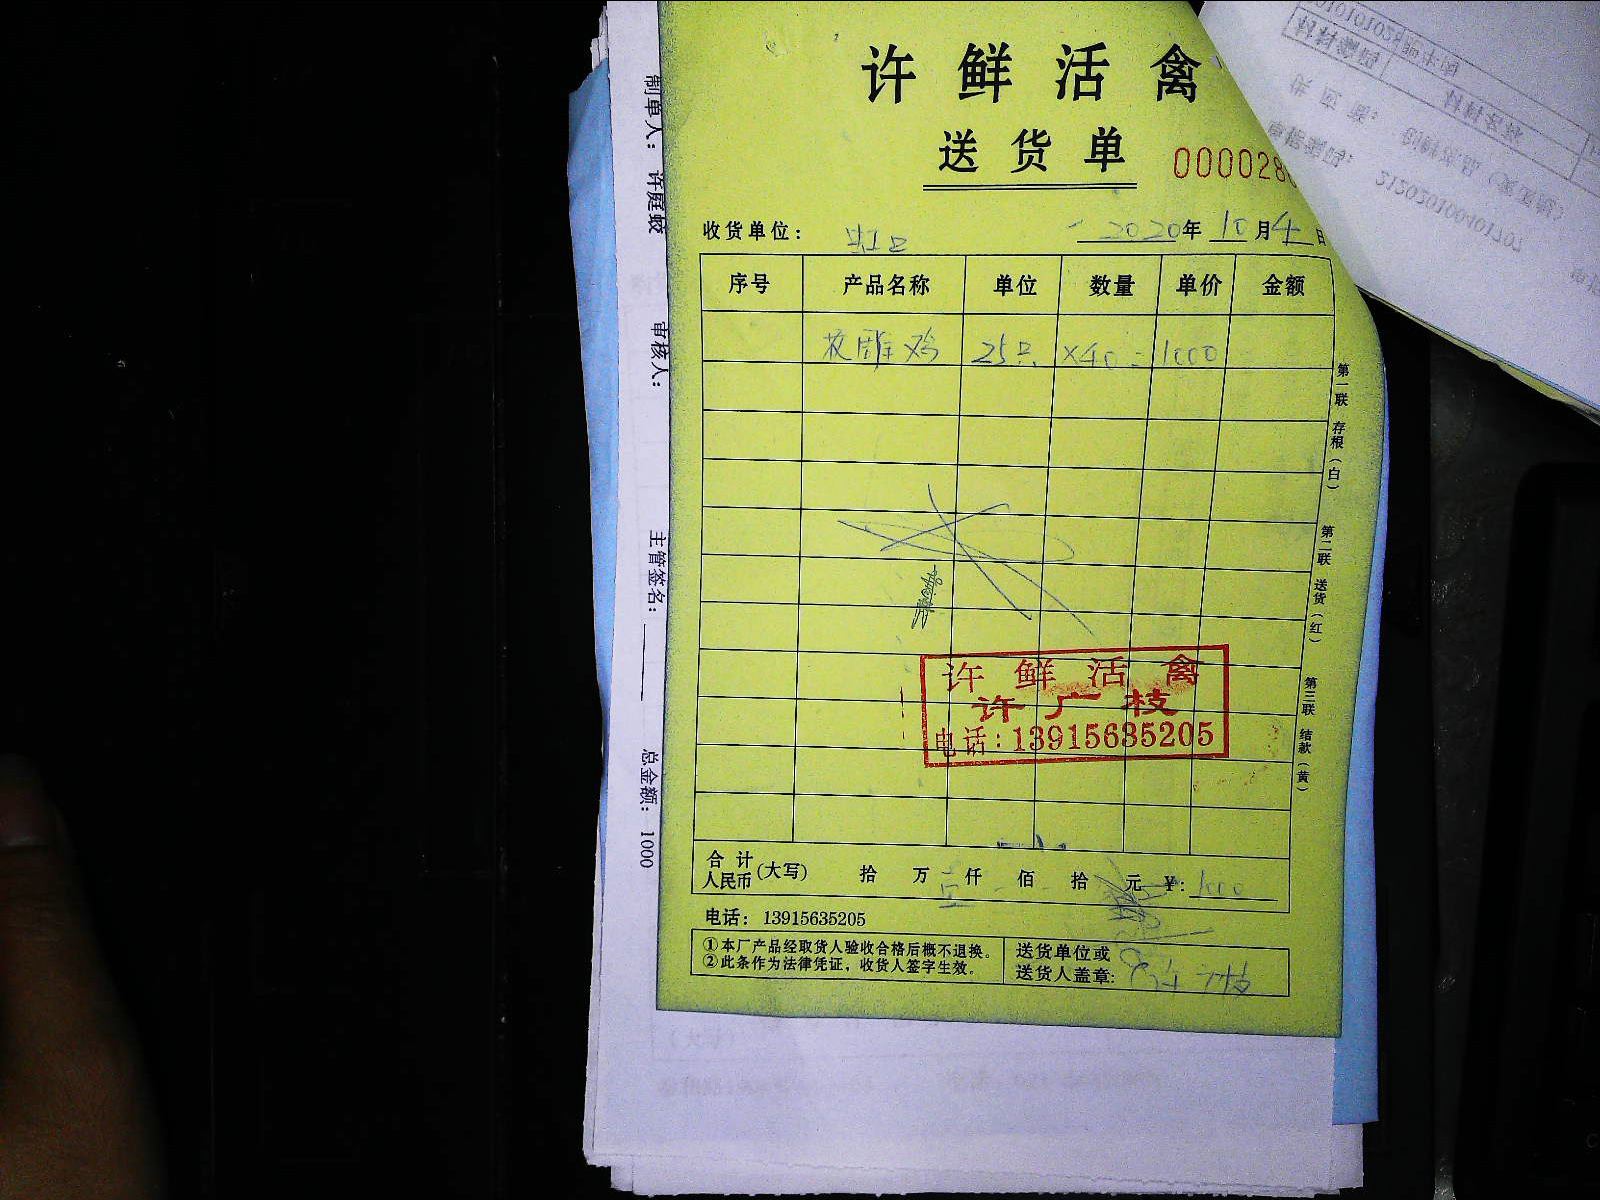 许鲜活禽
送货单
000028
收货单位: 虹口 2020年10月4日
序号 产品名称 单位 数量 单价 金额
25只 ×40=1000
第一联 存根(白) 第二联 送货(红) 第三联 结款(黄)
许鲜活禽
许广枝
电话:13915635205
合计人民币(大写) 拾 万 仟 佰 拾 元 ¥:1000
电话: 13915635205
①本厂产品经取货人验收合格后概不退换。
②此条作为法律凭证,收货人签字生效。
送货单位或
送货人盖章: 许广枝
制单人: 许庭蛟 审核人: 主管签名: 总金额: 1000
材料编码
材料名称
212020100401707